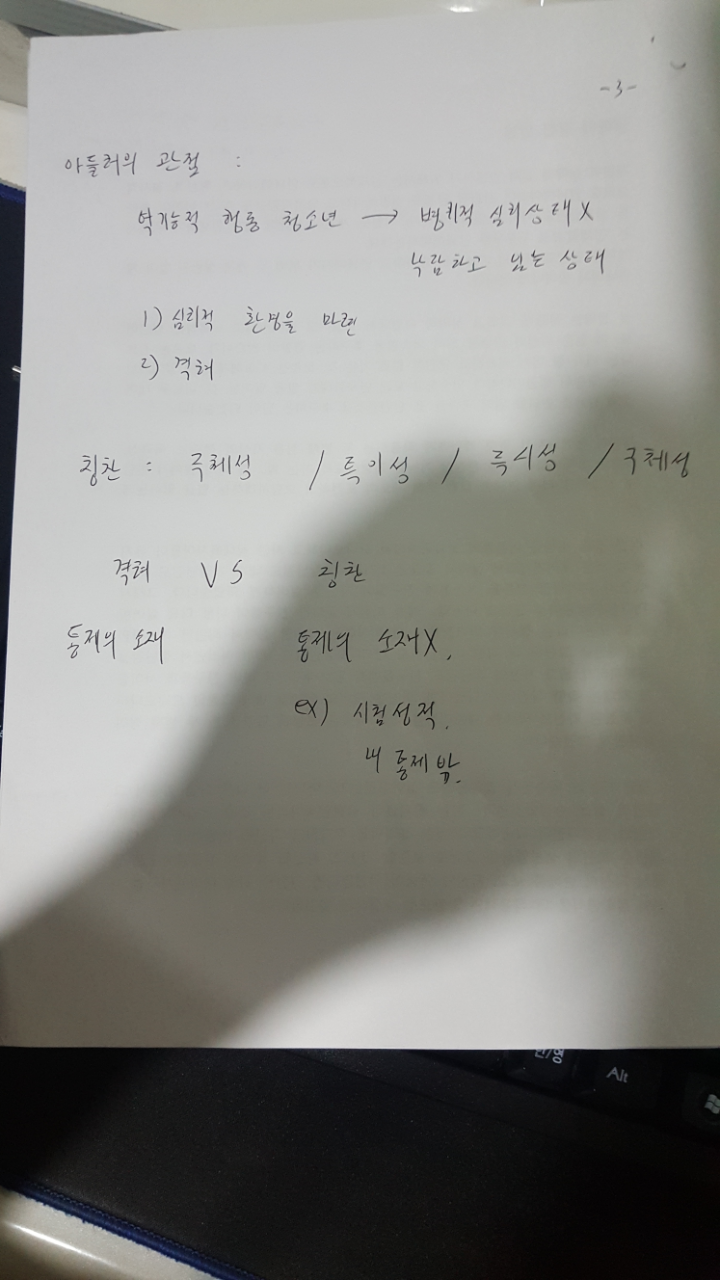 -3-
아들러의 관점 :
역기능적 행동 청소년 → 병리적 심리상태X
낙담하고 있는 상태
1) 심리적 환경을 마련
2) 격려
칭찬 : 구체성 / 특이성 / 즉시성 / 구체성
격려 VS 칭찬
통제의 소재 통제의 소재X.
ex) 시험성적.
내 통제 밖.
Alt